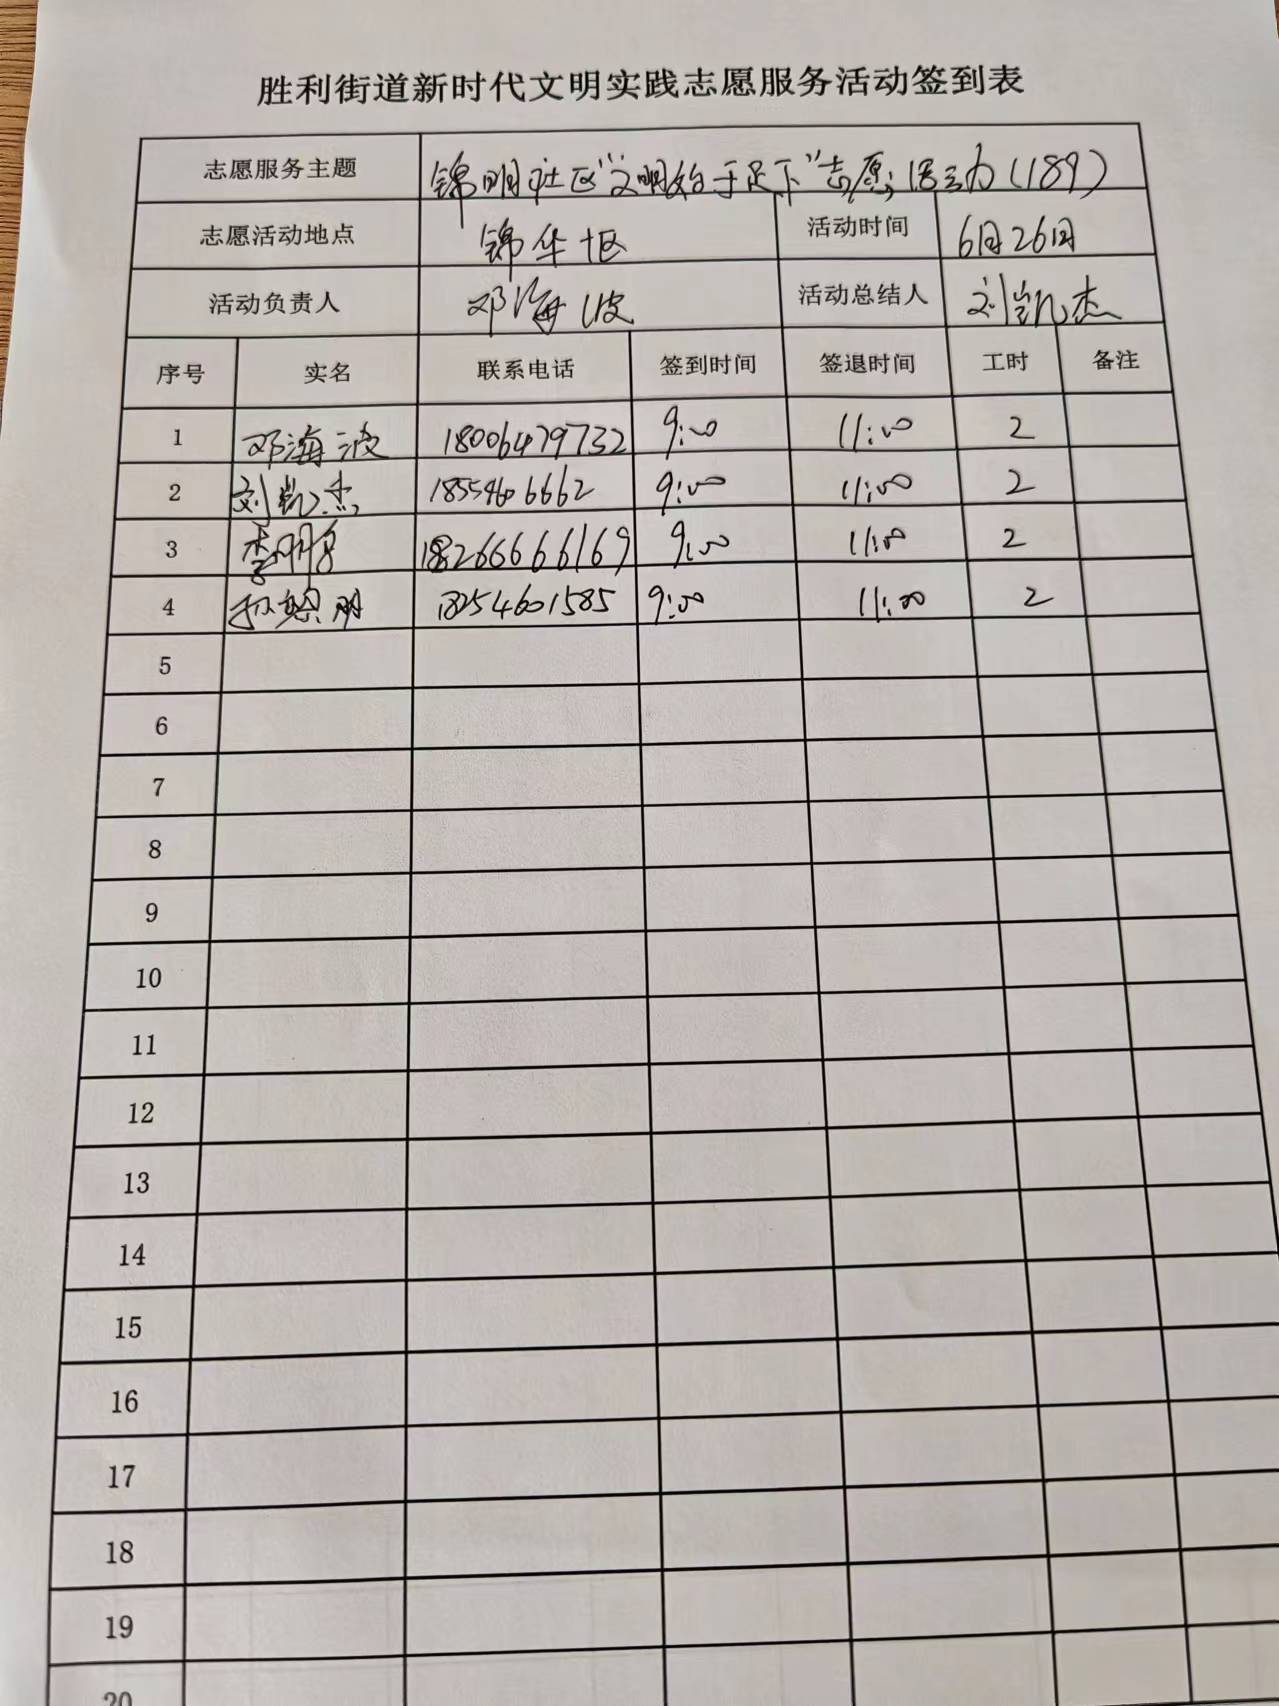 胜利街道新时代文明实践志愿服务活动签到表
志愿服务主题 锦明社区“文明始于足下”志愿活动(189)
志愿活动地点 锦华十区 活动时间 6月26日
活动负责人 邓海波 活动总结人 刘凯杰
序号 实名 联系电话 签到时间 签退时间 工时 备注
1 邓海波 18006479732 9:00 11:00 2
2 刘凯杰 1855466662 9:00 11:00 2
3 李明 18266666169 9:00 11:00 2
4 18254601585 9:00 11:00 2
5
6
7
8
9
10
11
12
13
14
15
16
17
18
19
20